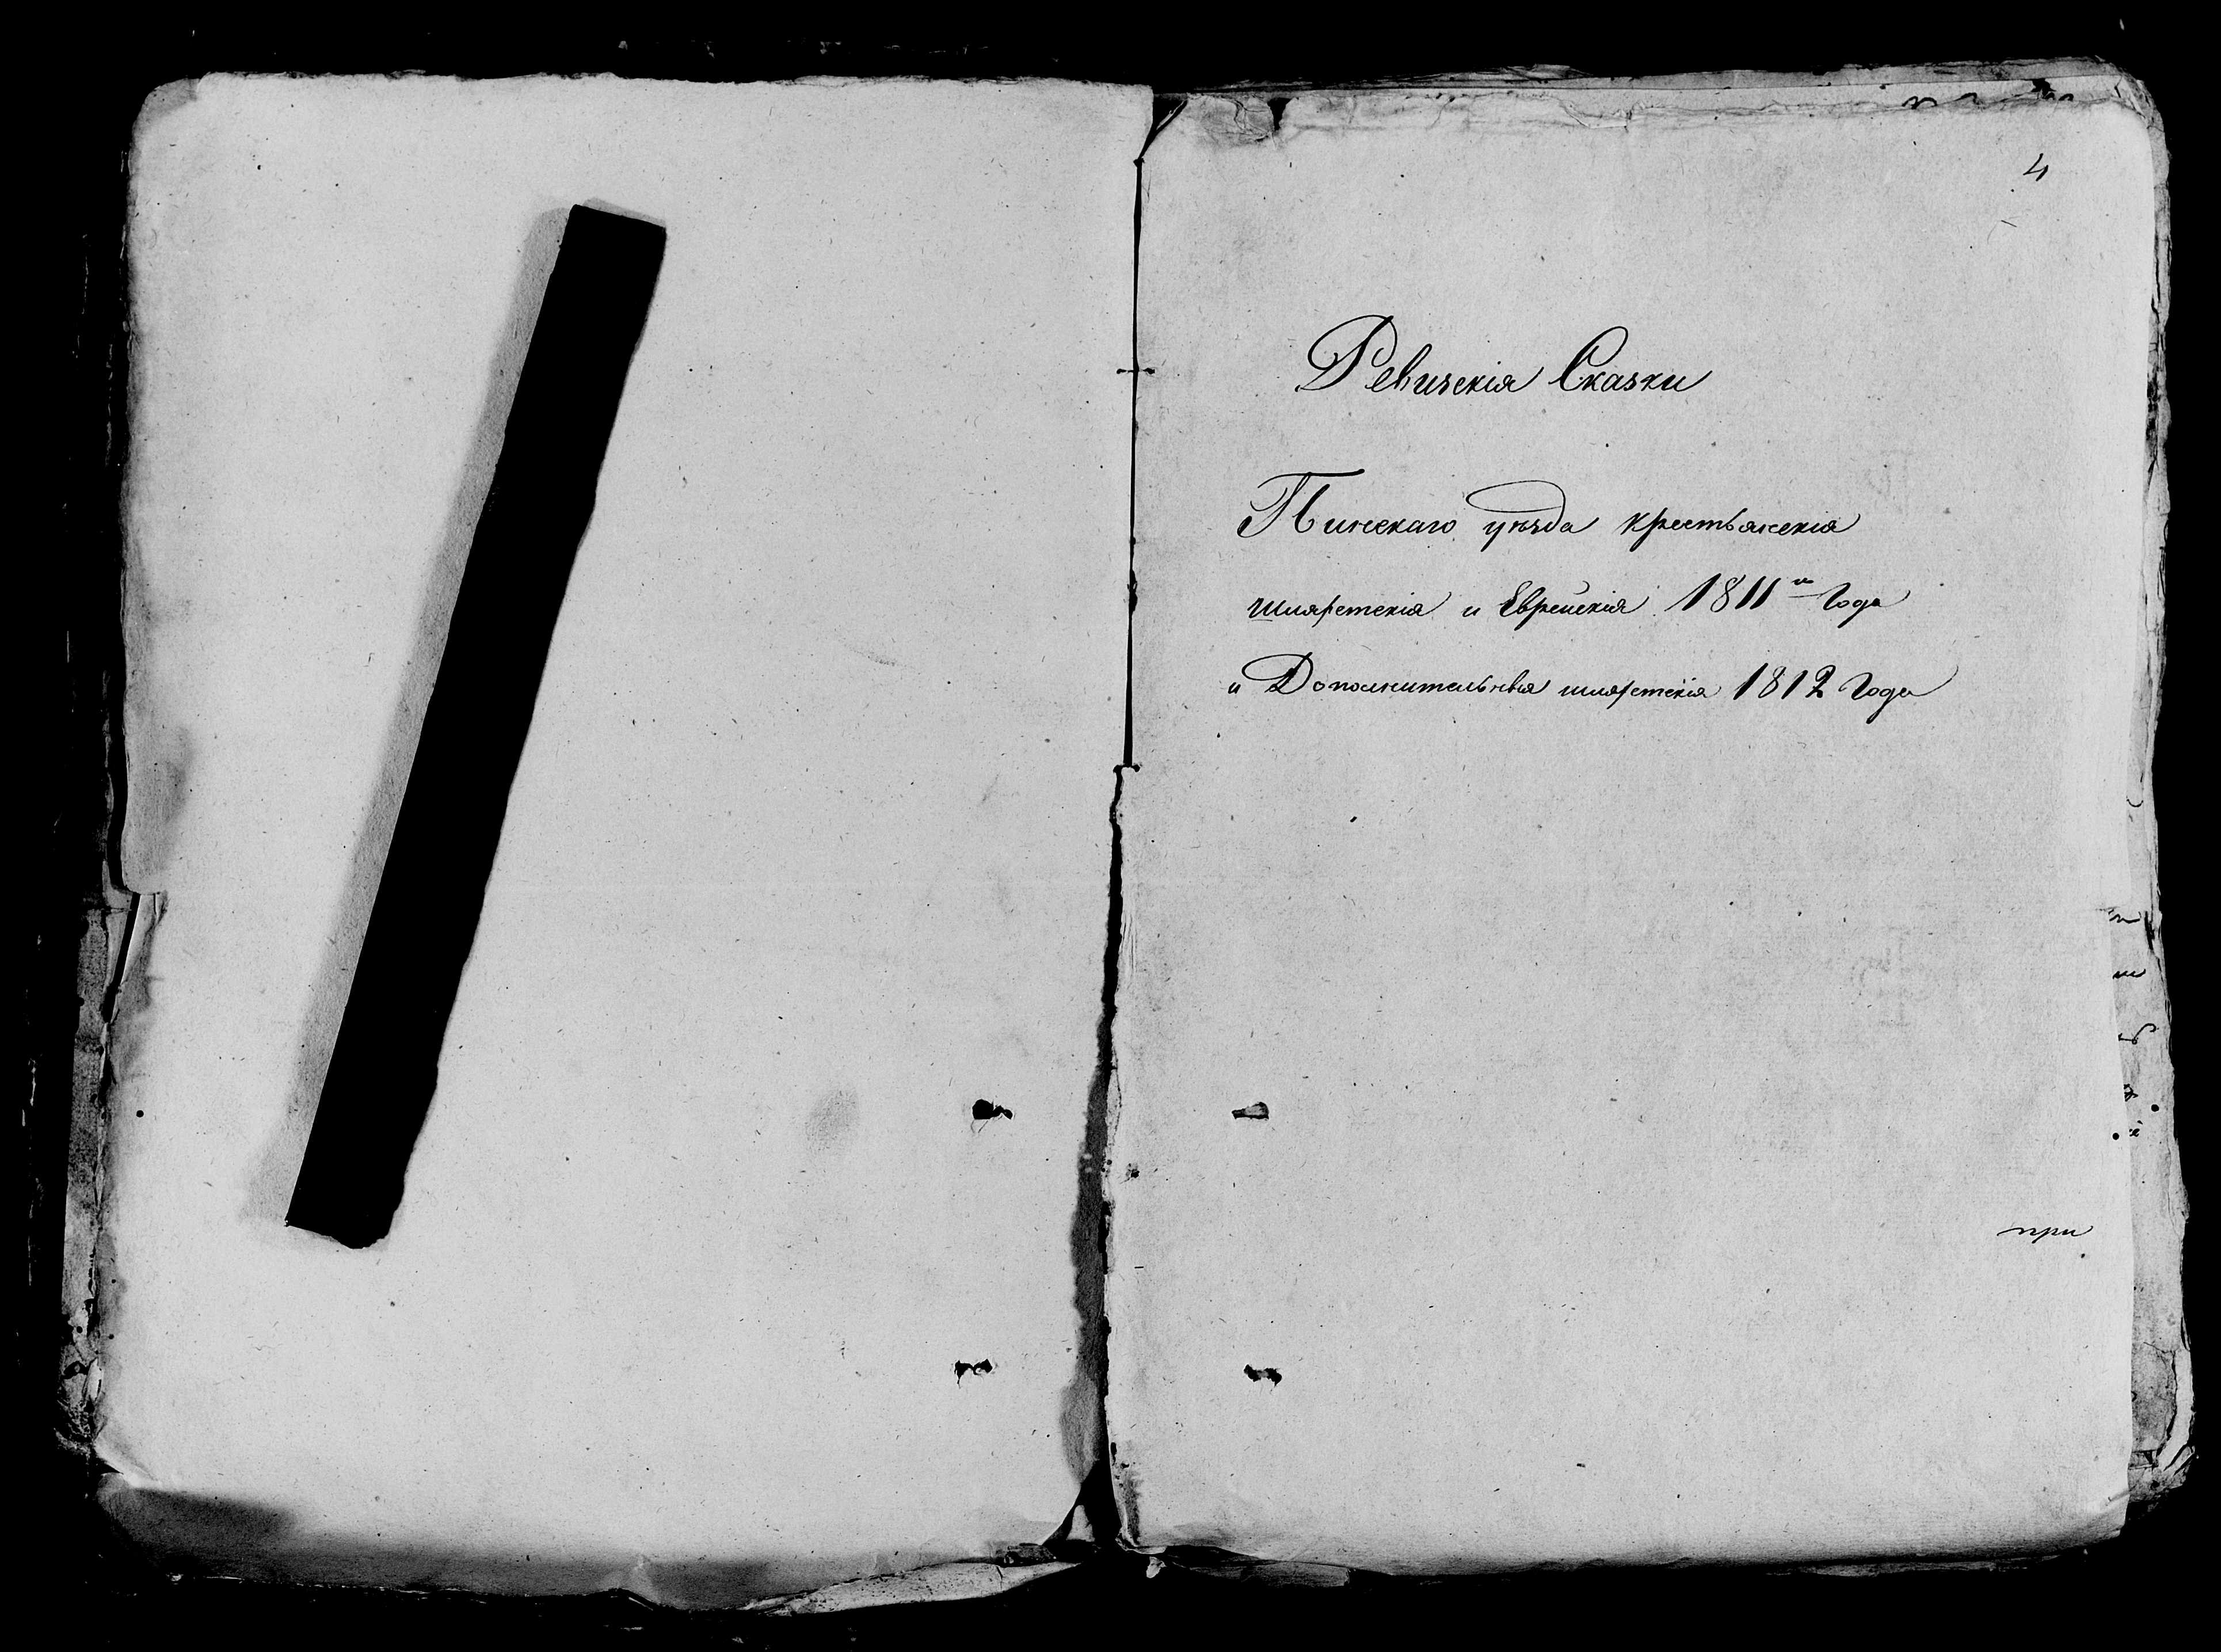 4
Ревизскія Сказки
Пинскаго уѣзда крестьянскія
шляхетскія и Еврейскія 1811го Года
и Дополнительныя шляхетскія 1812 Года
при